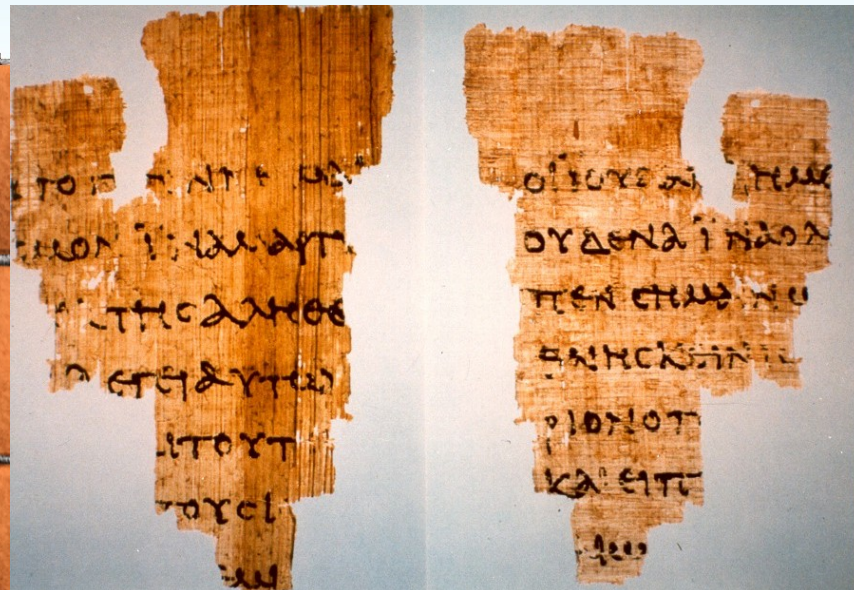 ΜΟΝ ΙΝΑ ΜΑΡΤΥ
ΤΗϹ ΑΛΗΘΕ
ΛΕΓΕΙ ΑΥΤΩ
ΤΟΥΤ
ΤΟΥϹ Ι
ΟΙ ΙΟΥΔΑΙ ΗΜΕ
ΟΥΔΕΝΑ ΙΝΑ Ο Λ
ΠΕΝ ϹΗΜΑΙΝΩ
ΘΝΗϹΚΕΙΝ ΙϹ
ΡΙΟΝ Ο Π
ΚΑΙ ΕΙΠ